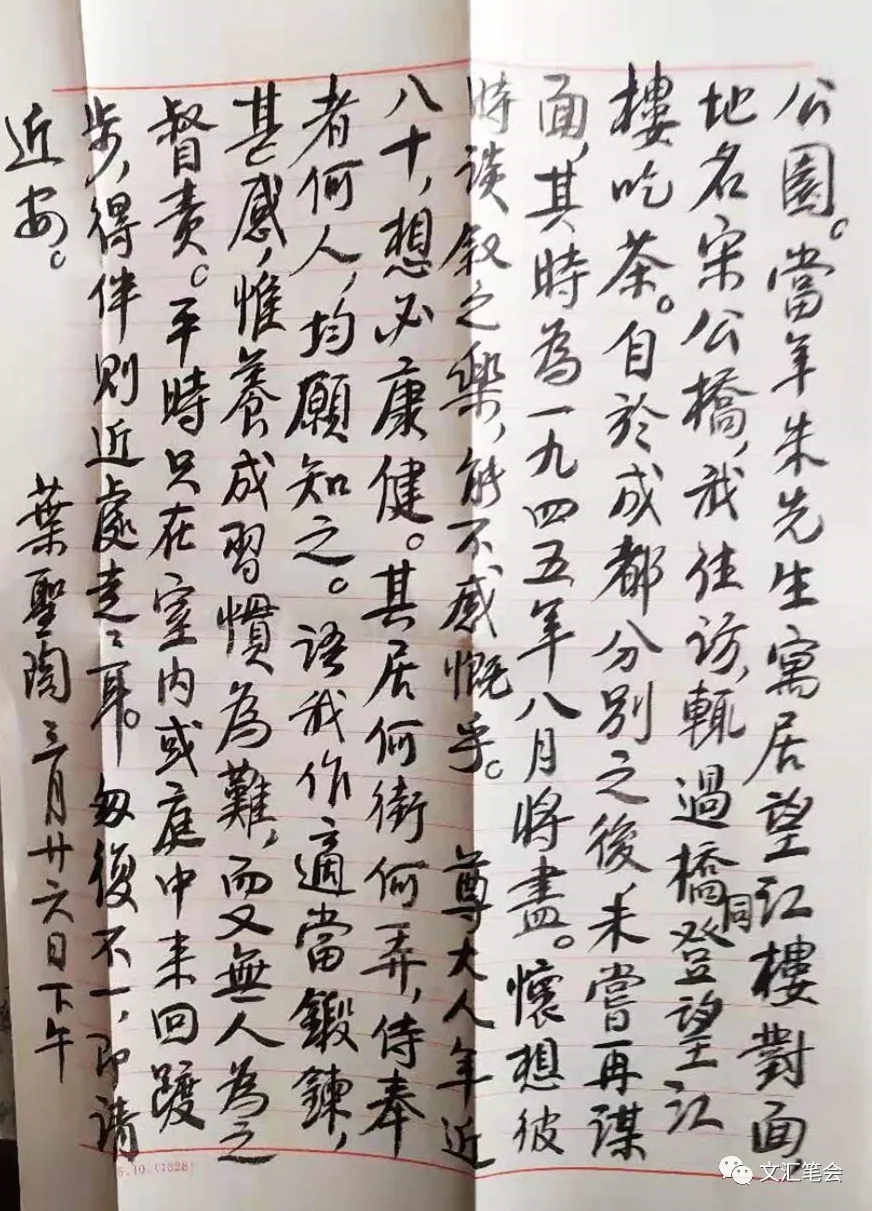 公園。當年朱先生寓居望江樓對面，
地名宋公橋，我往訪，輒過橋同登望江
樓吃茶。自於成都分別之後，未嘗再謀
面，其時為一九四五年八月將盡。懷想彼
時談敘之樂，能不感慨乎。　尊大人年近
八十，想必康健。其居何街何弄，侍奉
者何人，均願知之。語我作適當鍛鍊，
甚感，惟養成習慣為難，而又無人為之
督責。平時只在室内或庭中来回踱
步，得伴則近處走々耳。匆復不一，即請
近安。
葉聖陶 三月廿六日下午
5.10 (1328)
文汇笔会